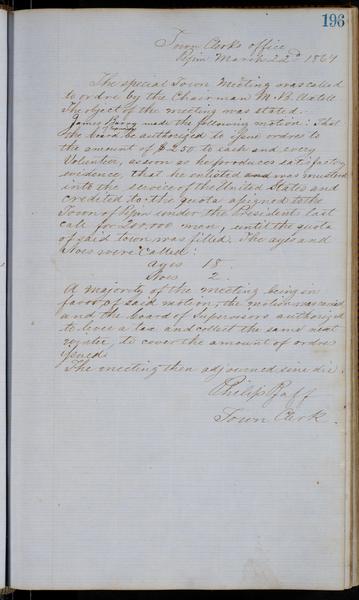 196
Town Clerks office
Pepin March 22d 1864
The special Town Meeting was called
to ordre by the Chairman M. B. Axtell
The object of the meeting was stated.
James Barry made the following motion: That
the board be authorized to issue ordres to
the amount of $250 to each and every
Volunteer, as soon as he produces satisfactory
evidence, that he enlisted and was mustered
into the service of the United States and
credited to the quota assigned to the
Town of Pepin under the Presidents last
call for 200,000 men, until the quota
of said town was filled. The ayes and
Noes were called:
ayes 18.
Noes 2.
A majority of the meeting being in
favor of said motion, the motion was
and the board of Supervisors authorized
to levee a tax and collect the same next
winter, to cover the amount of ordres
issued.
The meeting then adjourned sine die.
Philip Pfaff
Town Clerk.